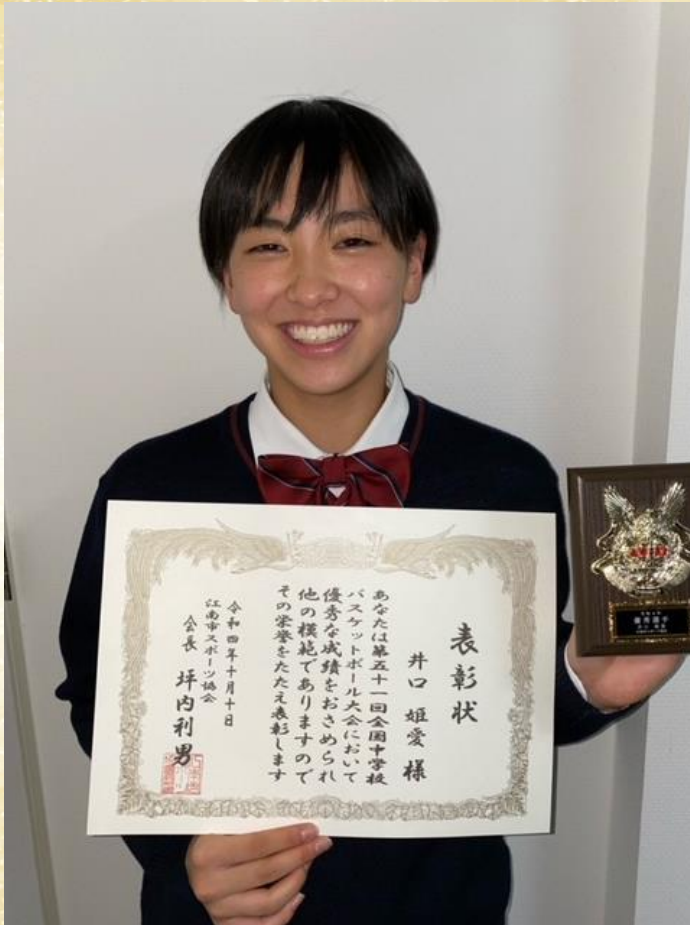 表彰状
井口 姫愛 様
あなたは第五十一回全国中学校
バスケットボール大会において
優秀な成績をおさめられ
他の模範でありますので
その栄誉をたたえ表彰します
令和四年十月十日
江南市スポーツ協会
会長 坪内利男
優秀選手